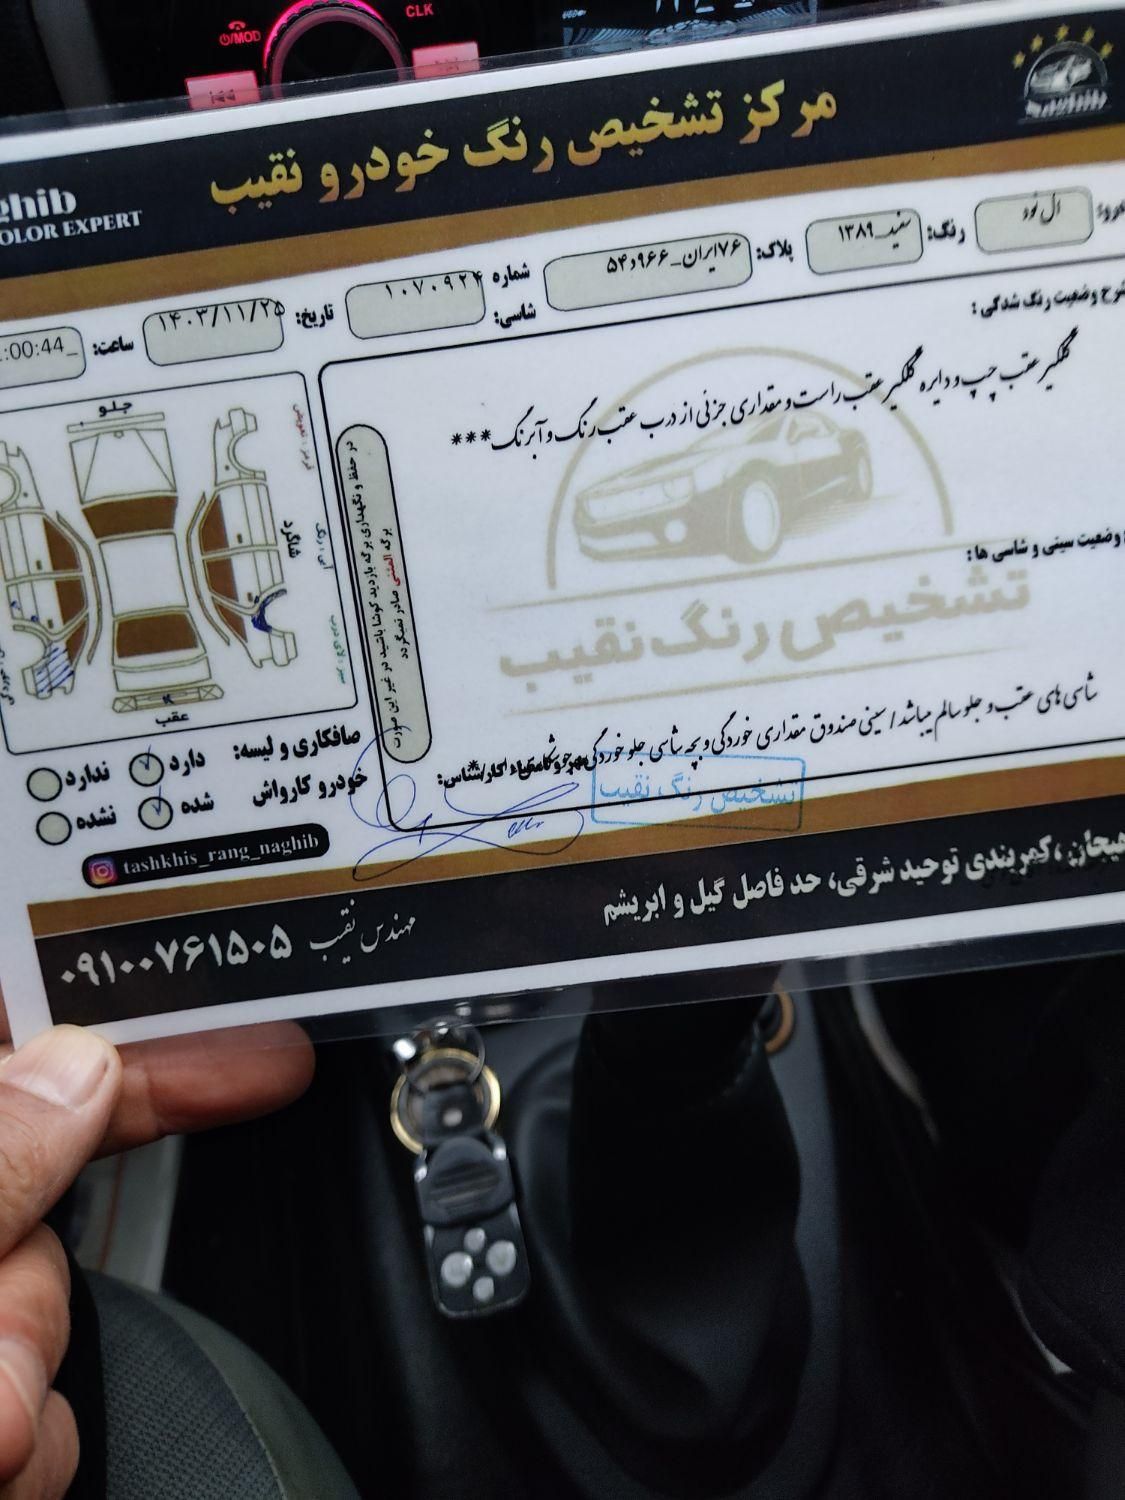 ⏻/MOD
CLK
مرکز تشخیص رنگ خودرو نقیب
ghib
OLOR EXPERT
ال نود
رنگ:
سفید_۱۳۸۹
پلاک:
۷۶ایران_۹۶۶و۵۴
شماره شاسی:
۱۰۷۰۹۲۴
تاریخ:
۱۴۰۳/۱۱/۲۵
ساعت:
:00:44_
شرح وضعیت رنگ شدگی :
گلگیر عقب چپ و دایره گلگیر عقب راست و مقداری جزئی از درب عقب رنگ و آبرنگ***
وضعیت سینی و شاسی ها :
تشخیص رنگ نقیب
شاسی های عقب و جلو سالم میباشد/ سینی صندوق مقداری خوردگی و بچه شاسی جلو خوردگی
کارشناس:
تشخیص رنگ نقیب
در حفظ و نگهداری برگه بازدید کوشا باشید در غیر این صورت
برگه المثنی صادر نمیگردد
جلو
شاگرد
عقب
صافکاری و لیسه:
دارد
ندارد
خودرو کارواش
شده
نشده
tashkhis_rang_naghib
کمربندی توحید شرقی، حد فاصل گیل و ابریشم
مهندس نقیب
۰۹۱۰۰۷۶۱۵۰۵